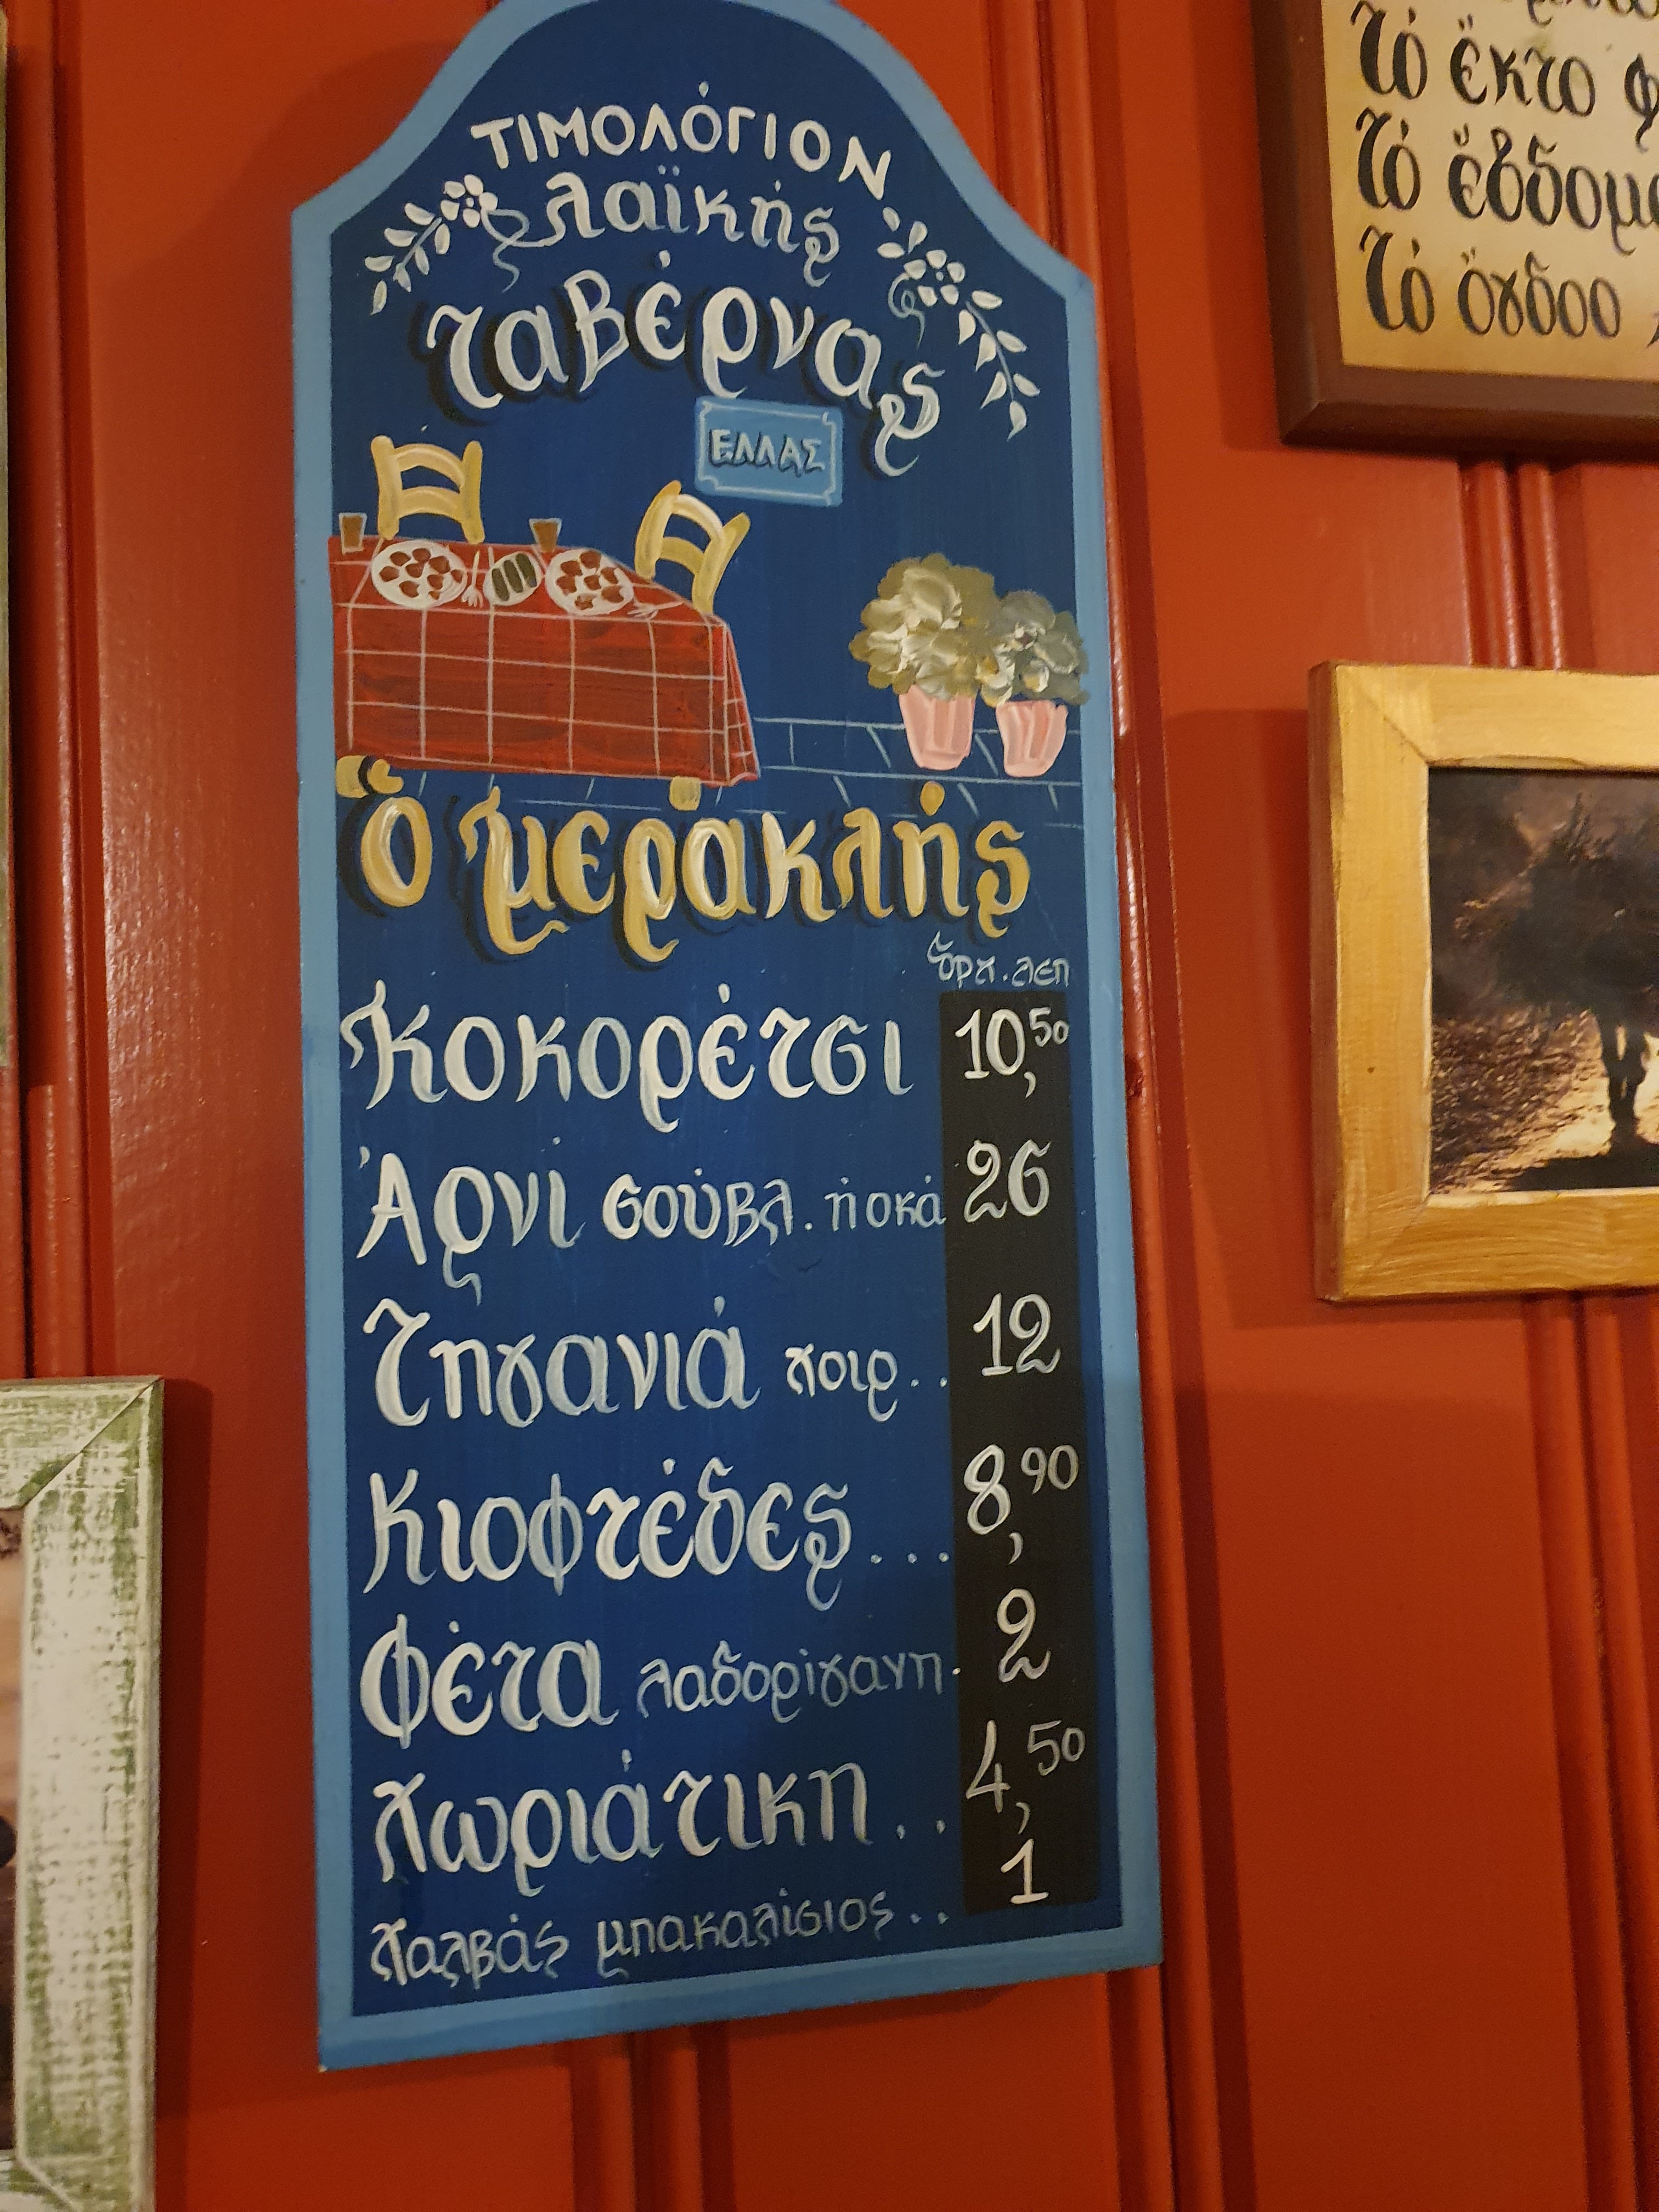 ΤΙΜΟΛΌΓΙΟΝ
λαϊκής
ταβέρνας
ΕΛΛΑΣ
Ὁ μερακλής
δρχ. λεπ
Κοκορέτσι 10,50
Ἀρνί σούβλ. ἡ οκά 26
Τηγανιά χοιρ.. 12
Κιοφτέδες... 8,90
Φέτα λαδορίγανη. 2
Χωριάτικη.. 4,50
Χαλβάς μπακαλίσιος.. 1
Τό ἕκτο
Τό ἕβδομο
Τό ὄγδοο